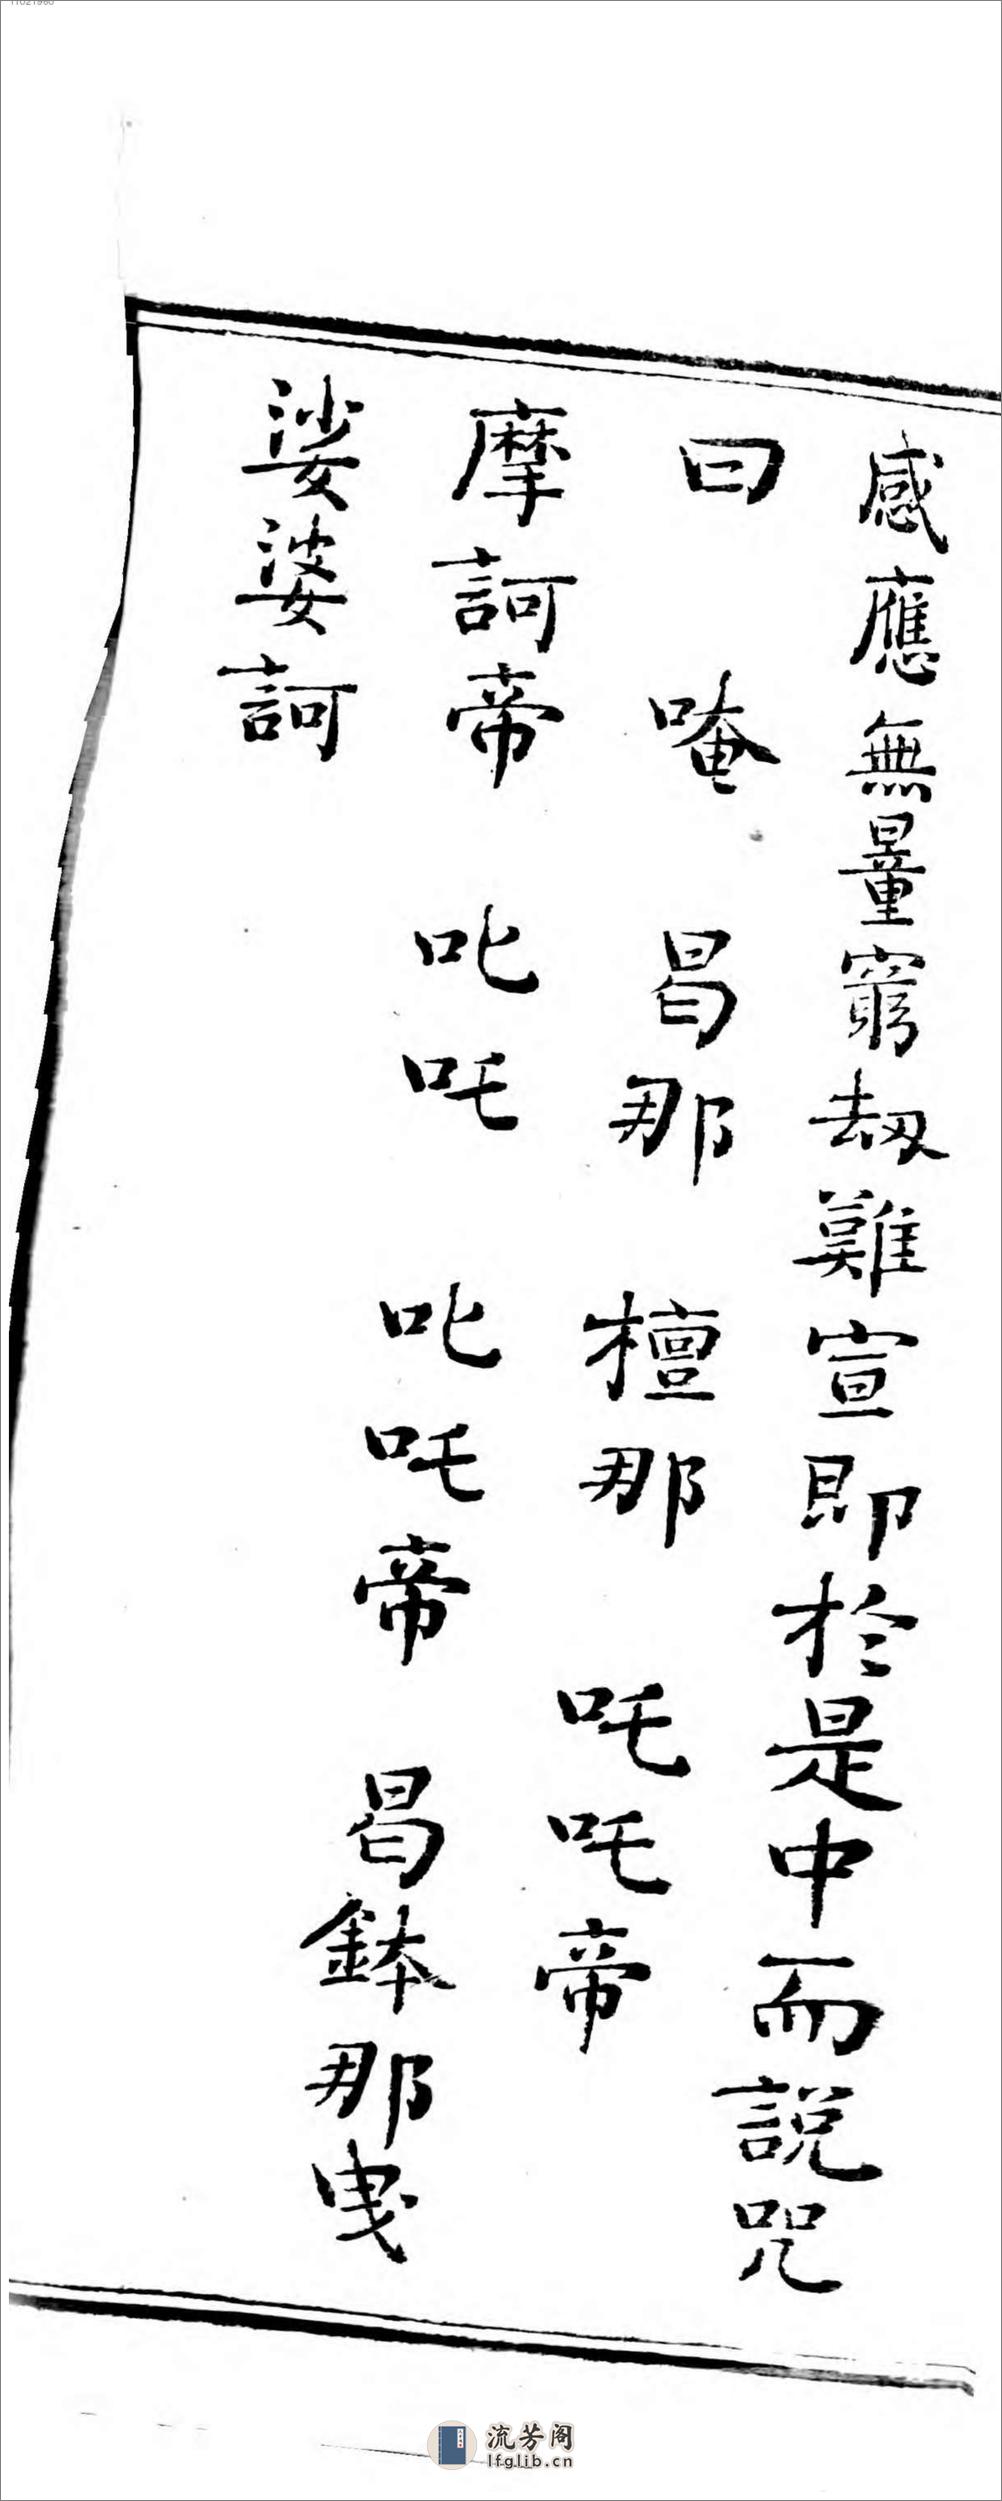 感應無量窮劫難宣即於是中而説咒
曰　唵　昌那　檀那　吒吒帝
摩訶帝　叱吒　叱吒帝　昌鉢那曵
娑婆訶
流芳阁
lfglib.cn